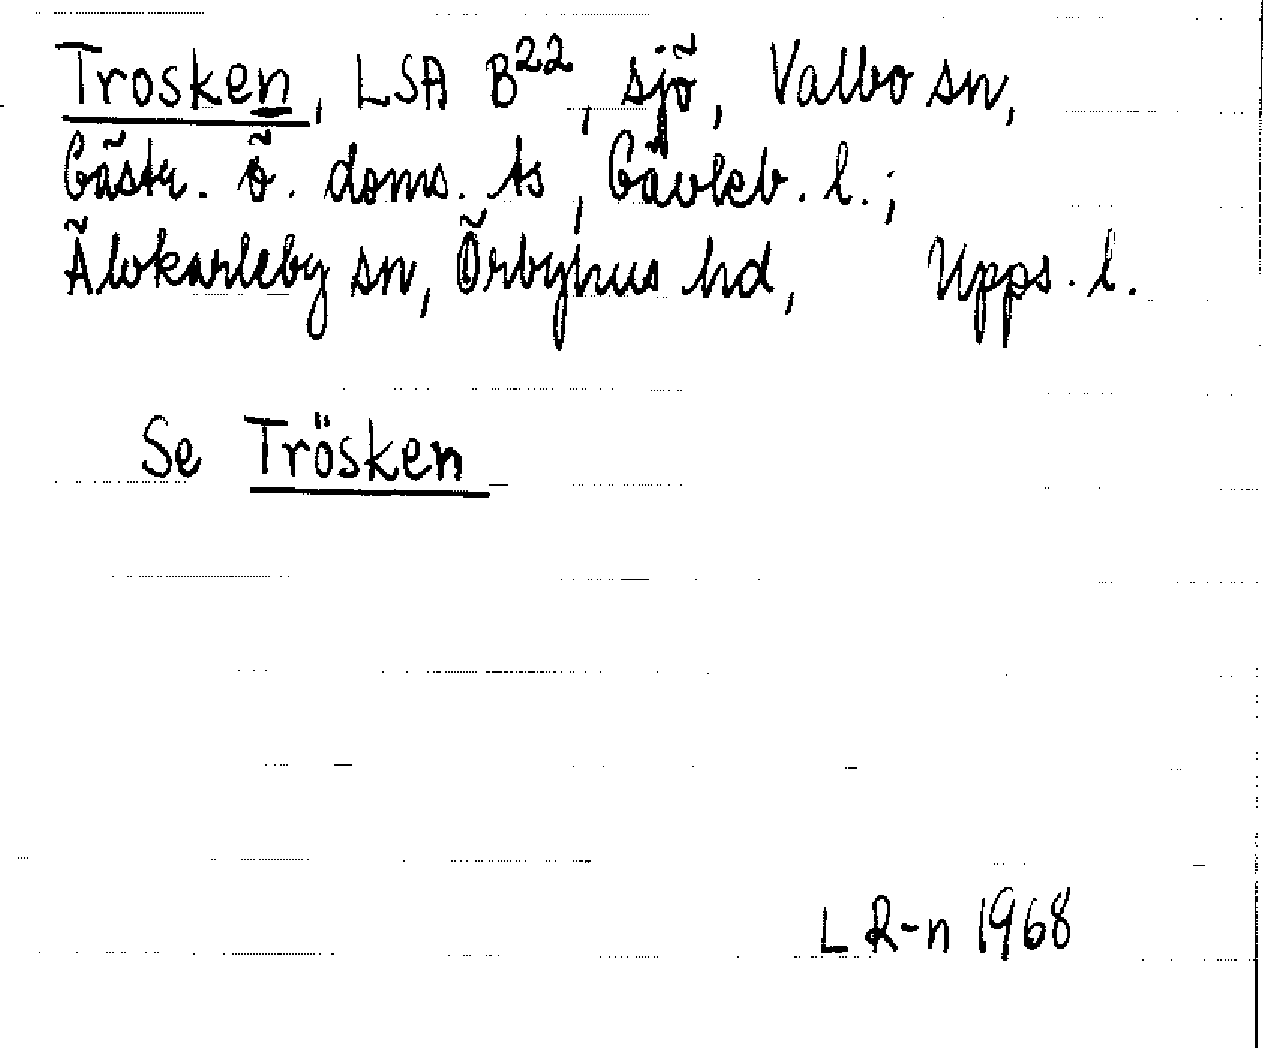 Trosken, LSA B22, sjö, Valbo sn,
Gästr. ö. doms. ts, Gävleb. l.;
Älvkarleby sn, Örbyhus hd, Upps. l.
Se Trösken
L R-n 1968